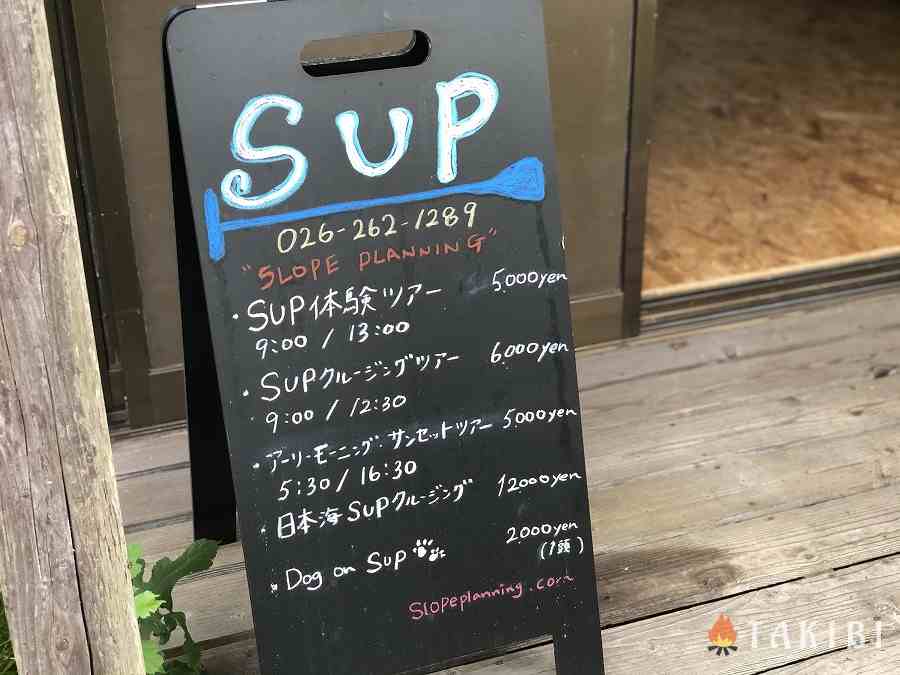 SUP
026-262-1289
"SLOPE PLANNING"
・SUP体験ツアー 5,000yen
9:00 / 13:00
・SUPクルージングツアー 6,000yen
9:00 / 12:30
・アーリーモーニング・サンセットツアー 5,000yen
5:30 / 16:30
・日本海SUPクルージング 12,000yen
・Dog on SUP 2,000yen
(1頭)
Slopeplanning.com
TAKIBI